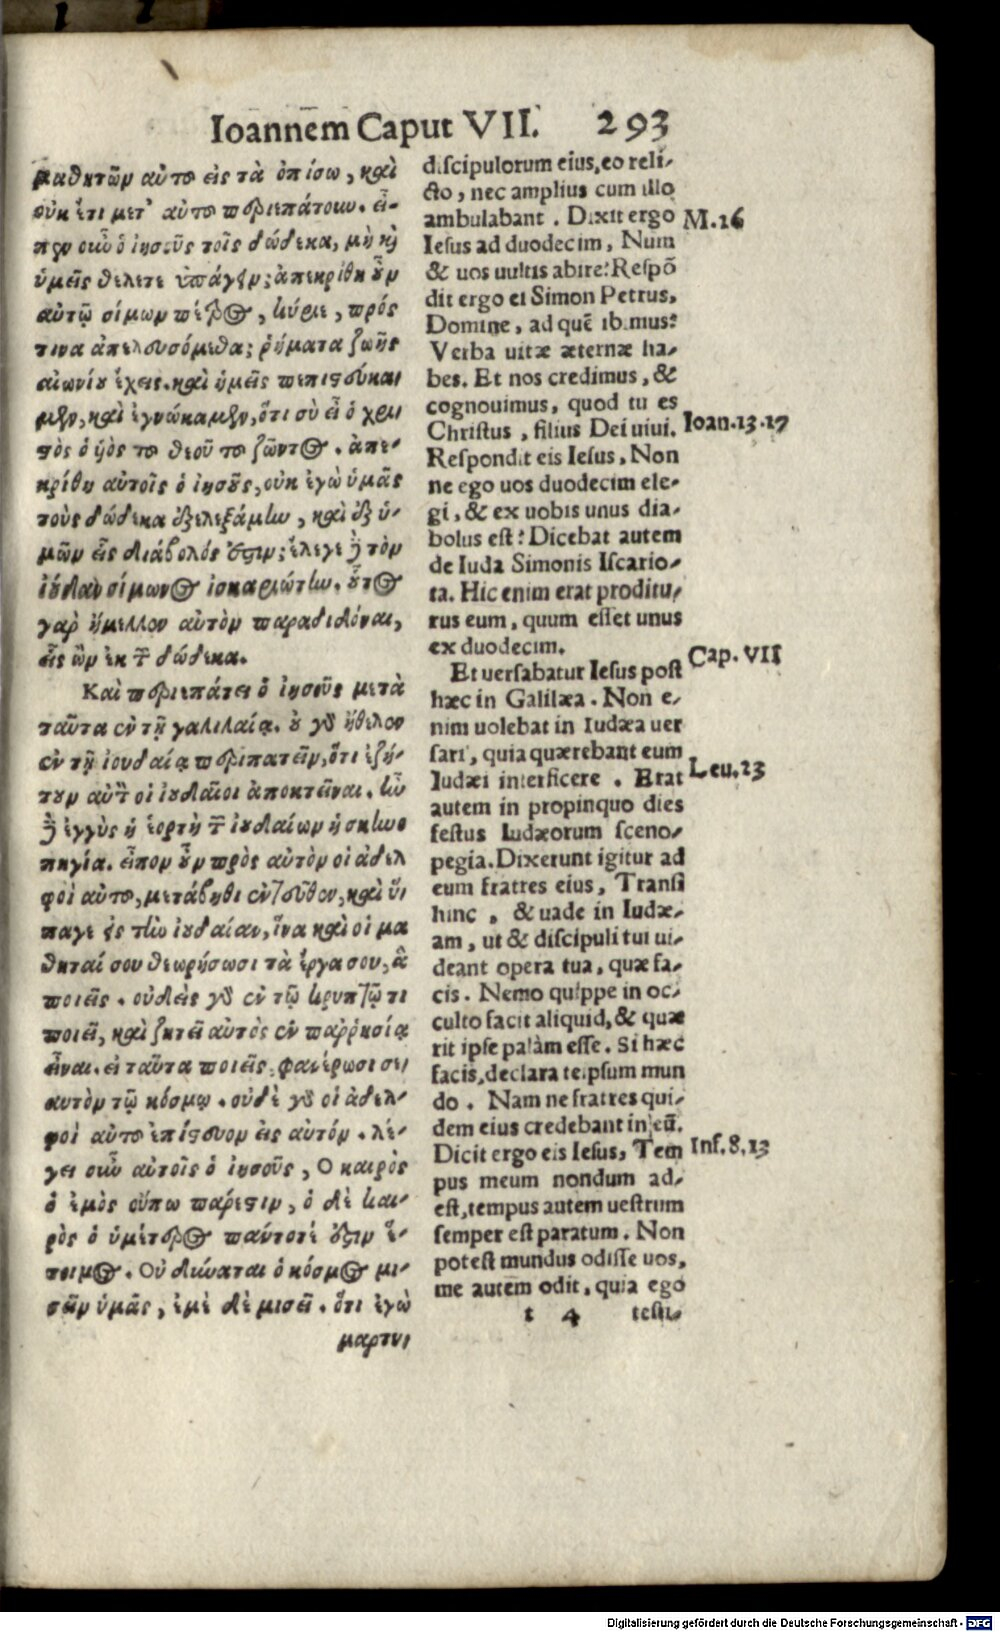 Ioannem Caput VII. 293
μαθητῶν αὐτοῦ εἰς τὰ ὀπίσω, καὶ
οὐκ ἔτι μετ' αὐτοῦ περιεπάτουν. εἶ-
πεν οὖν ὁ ἰησοῦς τοῖς δώδεκα, μὴ καὶ
ὑμεῖς θέλετε ὑπάγειν; ἀπεκρίθη οὖν
αὐτῷ σίμων πέτρος, κύριε, πρός
τινα ἀπελευσόμεθα; ῥήματα ζωῆς
αἰωνίου ἔχεις. καὶ ἡμεῖς πεπιστεύκα-
μεν, καὶ ἐγνώκαμεν, ὅτι σὺ εἶ ὁ χρι
στὸς ὁ ὑὸς τοῦ θεοῦ τοῦ ζῶντος. ἀπε-
κρίθη αὐτοῖς ὁ ἰησοῦς, οὐκ ἐγὼ ὑμᾶς
τοὺς δώδεκα ἐξελεξάμην, καὶ ἐξ ὑ-
μῶν εἷς διάβολός ἐστιν; ἔλεγε δὲ τὸν
ἰούδαν σίμωνος ἰσκαριώτην. οὗτος
γαρ ἤμελλον αὐτὸν παραδιδόναι,
εἷς ὢν ἐκ τῶν δώδεκα.
Καὶ περιεπάτει ὁ ἰησοῦς μετὰ
ταῦτα ἐν τῇ γαλιλαίᾳ. οὐ γὰρ ἤθελον
ἐν τῇ ἰουδαίᾳ περιπατεῖν, ὅτι ἐζή-
τουν αὐτὸν οἱ ἰουδαῖοι ἀποκτεῖναι. ἦν
δὲ ἐγγὺς ἡ ἑορτὴ τῶν ἰουδαίων ἡ σκηνο
πηγία. εἶπον οὖν πρὸς αὐτὸν οἱ ἀδελ
φοὶ αὐτοῦ, μετάβηθι ἐντεῦθεν, καὶ ὕ
παγε εἰς τὴν ἰουδαίαν, ἵνα καὶ οἱ μα
θηταί σου θεωρήσωσι τὰ ἔργα σου, ἃ
ποιεῖς. οὐδεὶς γὰρ ἐν τῷ κρυπτῷ τι
ποιεῖ, καὶ ζητεῖ αὐτὸς ἐν παρρησίᾳ
εἶναι. εἰ ταῦτα ποιεῖς, φανέρωσι σε-
αυτὸν τῷ κόσμῳ. οὐδὲ γὰρ οἱ ἀδελ-
φοὶ αὐτοῦ ἐπίστευον εἰς αὐτόν. λέ-
γει οὖν αὐτοῖς ὁ ἰησοῦς, Ο καιρὸς
ὁ ἐμὸς οὔπω πάρεστιν, ὁ δὲ και-
ρὸς ὁ ὑμέτερος πάντοτέ ἐστιν ἕ-
τοιμος. Οὐ δύναται ὁ κόσμος μι-
σεῖν ὑμᾶς, ἐμὲ δὲ μισεῖ. ὅτι ἐγὼ
μαρτυ-
discipulorum eius, eo reli-
cto, nec amplius cum illo
ambulabant. Dixit ergo
Iesus ad duodecim, Num
& uos uultis abire? Respō
dit ergo ei Simon Petrus,
Domine, ad quē ibimus?
Verba uitæ æternæ ha-
bes. Et nos credimus, &
cognouimus, quod tu es
Christus, filius Dei uiui.
Respondit eis Iesus, Non
ne ego uos duodecim ele-
gi, & ex uobis unus dia-
bolus est? Dicebat autem
de Iuda Simonis Iscario-
ta. Hic enim erat proditu-
rus eum, quum esset unus
ex duodecim.
Et uersabatur Iesus post
hæc in Galilæa. Non e-
nim uolebat in Iudæa uer
sari, quia quærebant eum
Iudæi interficere. Erat
autem in propinquo dies
festus Iudæorum sceno-
pegia. Dixerunt igitur ad
eum fratres eius, Transi
hinc, & uade in Iudæ-
am, ut & discipuli tui ui-
deant opera tua, quæ fa-
cis. Nemo quippe in oc-
culto facit aliquid, & quæ
rit ipse palàm esse. Si hæc
facis, declara teipsum mun
do. Nam ne fratres qui-
dem eius credebant in eū.
Dicit ergo eis Iesus, Tem
pus meum nondum ad-
est, tempus autem uestrum
semper est paratum. Non
potest mundus odisse uos,
me autem odit, quia ego
t 4 testi-
M.16
Ioan.13.17
Cap. VII
Leu.23
Inf.8.13
Digitalisierung gefördert durch die Deutsche Forschungsgemeinschaft - DFG